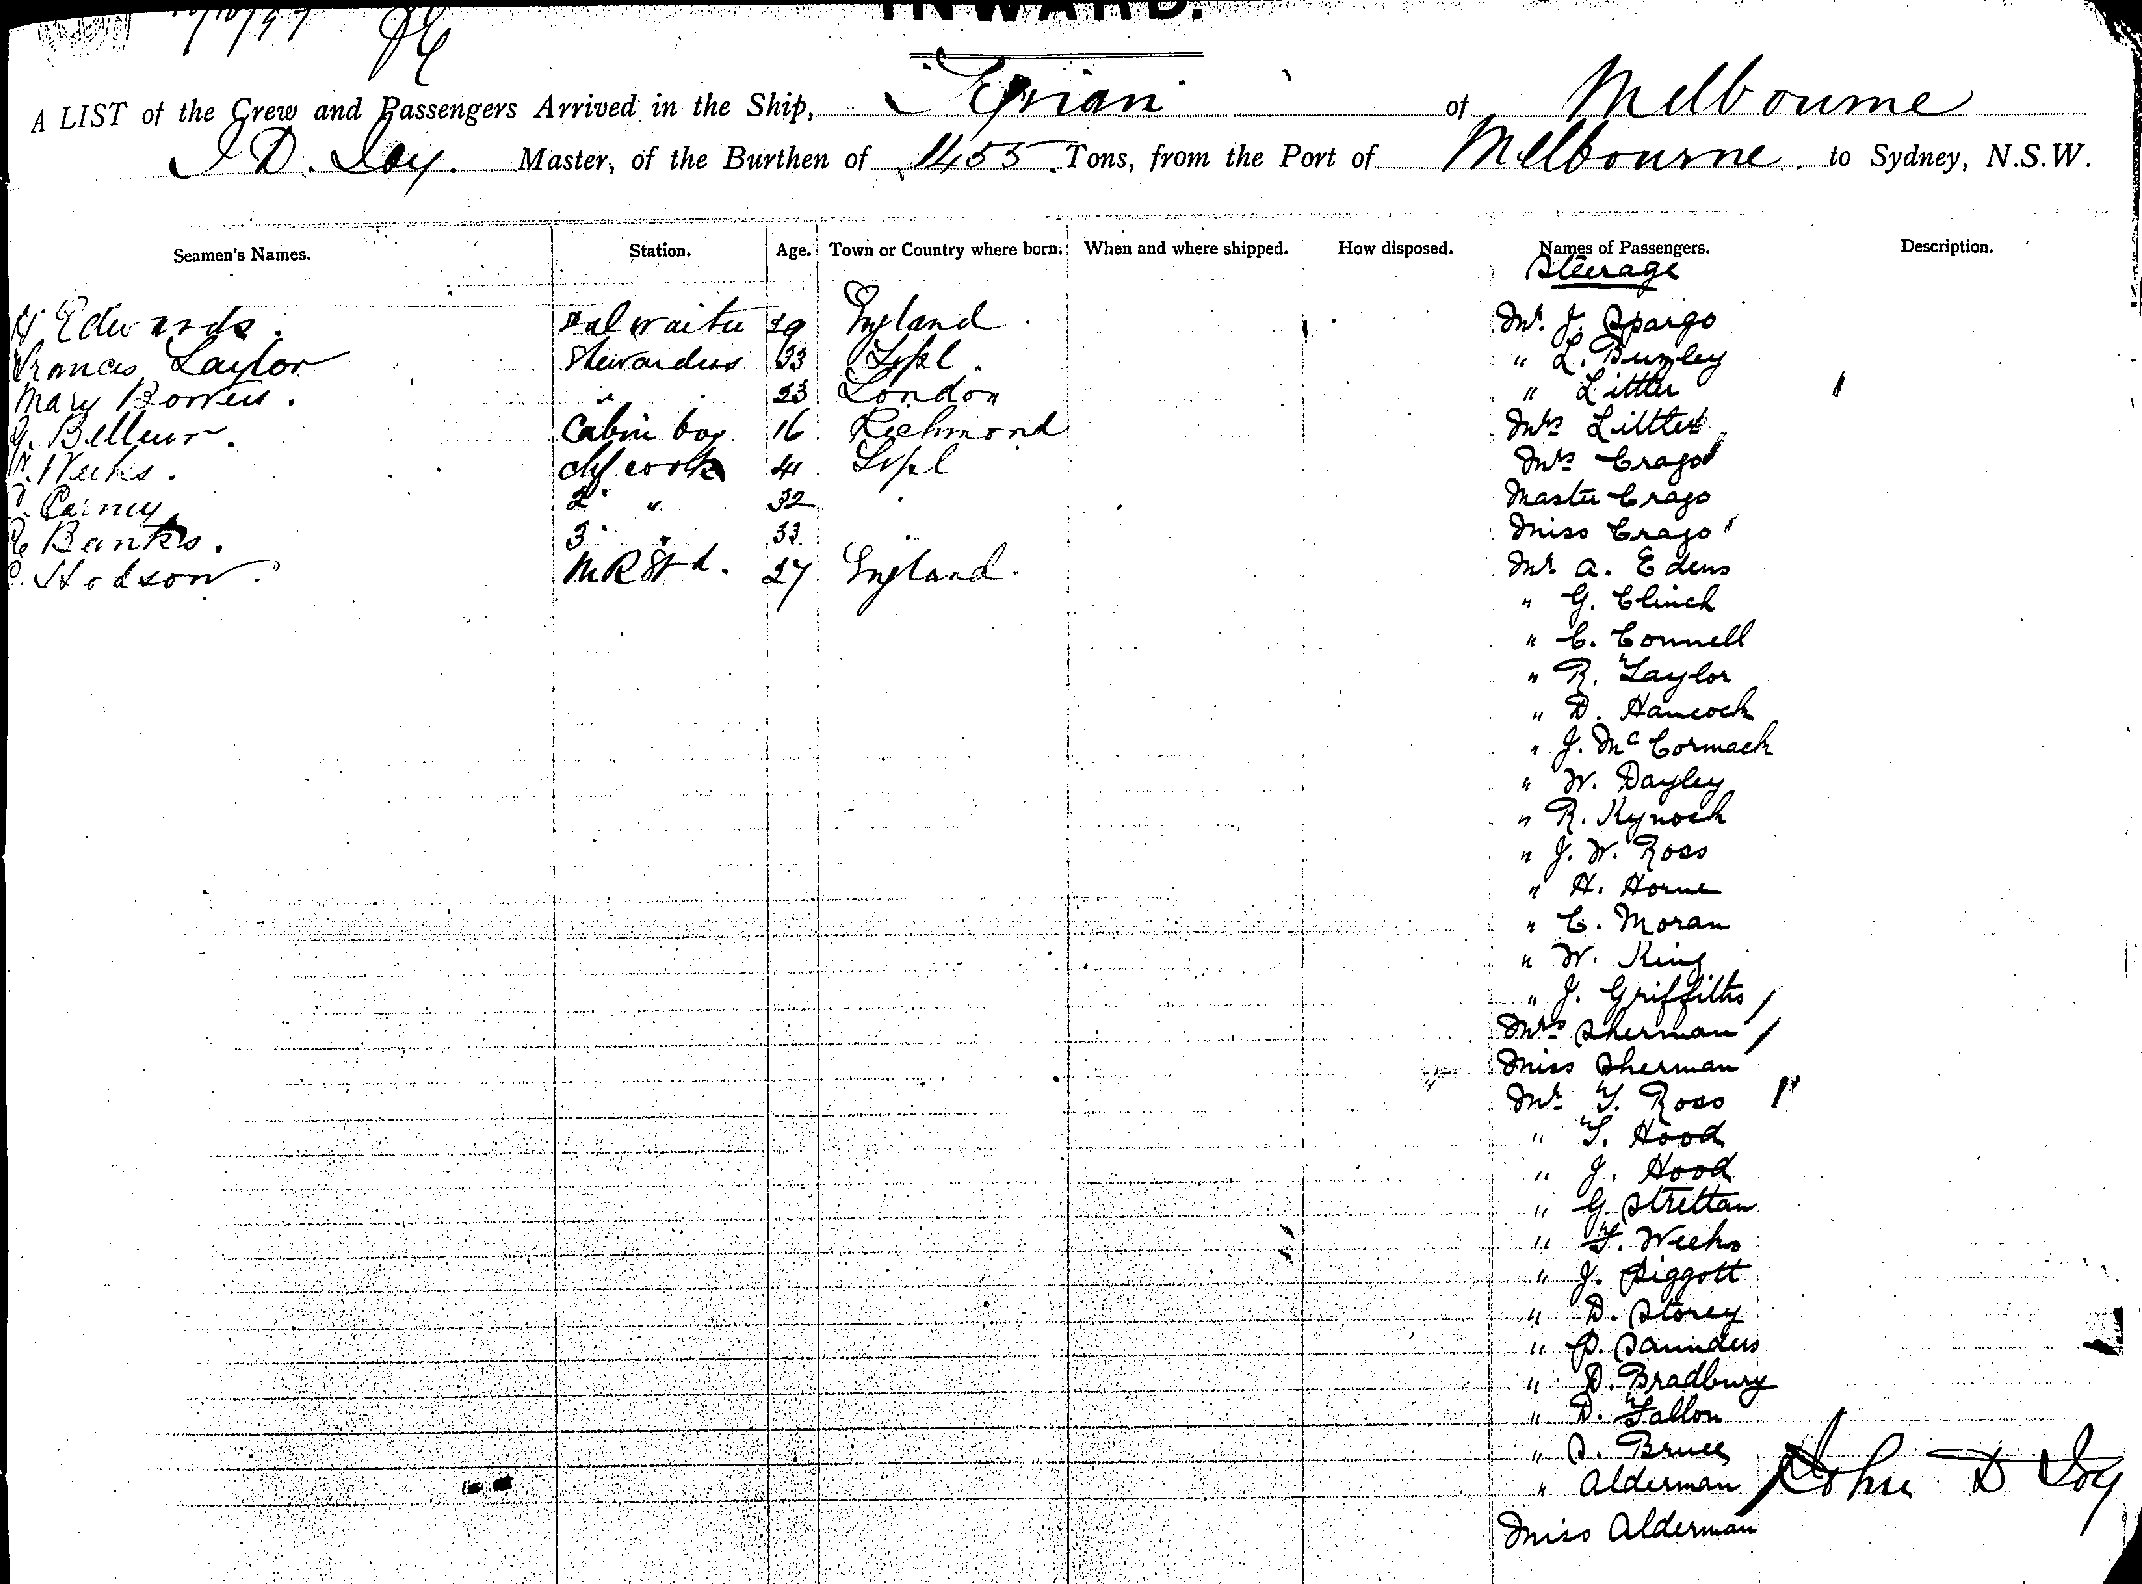 INWARD.
A LIST of the Crew and Passengers Arrived in the Ship, Tyrian of Melbourne
J D. Joy. Master, of the Burthen of 1455 Tons, from the Port of Melbourne to Sydney, N.S.W.
Seamen's Names. Station. Age. Town or Country where born. When and where shipped. How disposed. Names of Passengers. Description.
Steerage
H Edwards. Sal waiter 29 England Mr. J. Spargo
Frances Taylor Stewardess 33 Lpl. " L. Bumley
Mary Bowers. " 23 London " Littler
J. Belleur. Cabin boy 16 Richmond Mrs Littler
Weeks. chf cook 41 Lpl Mrs Crago
Carney 2 " 32 Master Crago
Banks. 3 " 33 Miss Crago
C. Hodson. M R Std. 27 England. Mr. A. Edens
" G. Clinch
" C. Connell
" R. Taylor
" D. Hancock
" J. McCormack
" W. Dayley
" R. Kynoch
" J. W. Ross
" H. Horne
" C. Moran
" W. King
" J. Griffiths
Mrs Sherman
Miss Sherman
Mr. T. Ross
" T. Hood
" J. Hood
" G. Strettan
" T. Weeks
" J. Piggott
" D. Storey
" P. Saunders
" D. Bradbury
" D. Fallon
" S. Bruce
" Alderman John D Joy
Miss Alderman